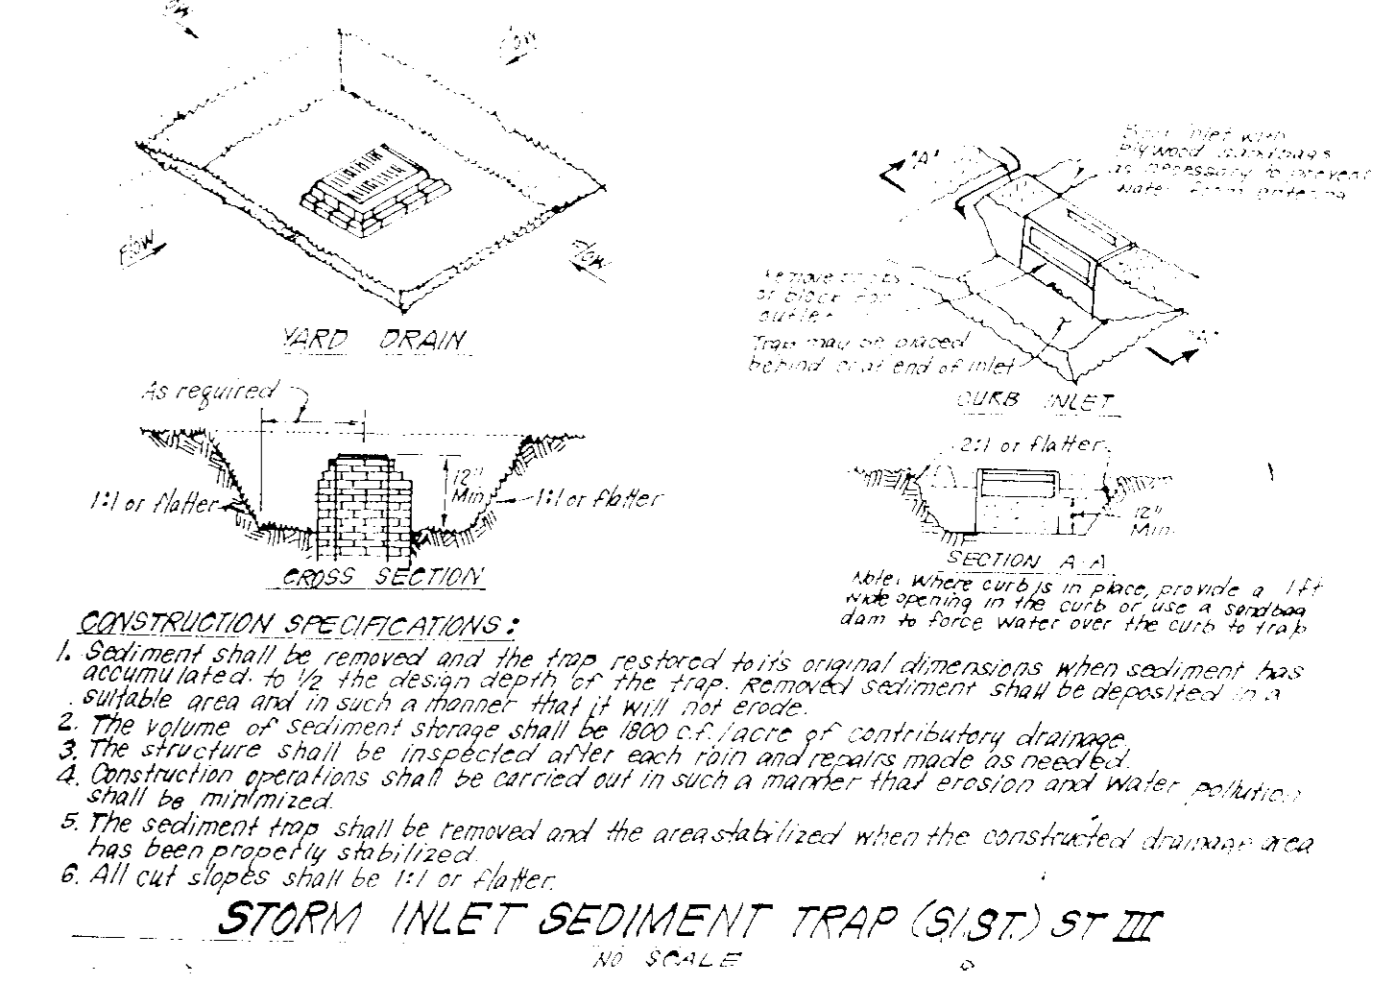 Flow
Flow
Flow
YARD DRAIN
As required
1:1 or flatter
12"
Min.
1:1 or flatter
CROSS SECTION
"A"
inlet with
plywood sandbags
as necessary to prevent
water from entering
Remove
or block
outlet
Trap may be placed
behind or at end of inlet
"A"
CURB INLET
2:1 or flatter
12"
Min.
SECTION A-A
Note: Where curb is in place, provide a 1 ft
wide opening in the curb or use a sandbag
dam to force water over the curb to trap
CONSTRUCTION SPECIFICATIONS:
1. Sediment shall be removed and the trap restored to its original dimensions when sediment has
accumulated to 1/2 the design depth of the trap. Removed sediment shall be deposited in a
suitable area and in such a manner that it will not erode.
2. The volume of sediment storage shall be 1800 c.f./acre of contributory drainage.
3. The structure shall be inspected after each rain and repairs made as needed.
4. Construction operations shall be carried out in such a manner that erosion and water pollution
shall be minimized.
5. The sediment trap shall be removed and the area stabilized when the constructed drainage area
has been properly stabilized.
6. All cut slopes shall be 1:1 or flatter.
STORM INLET SEDIMENT TRAP (S.I.S.T.) ST III
NO SCALE